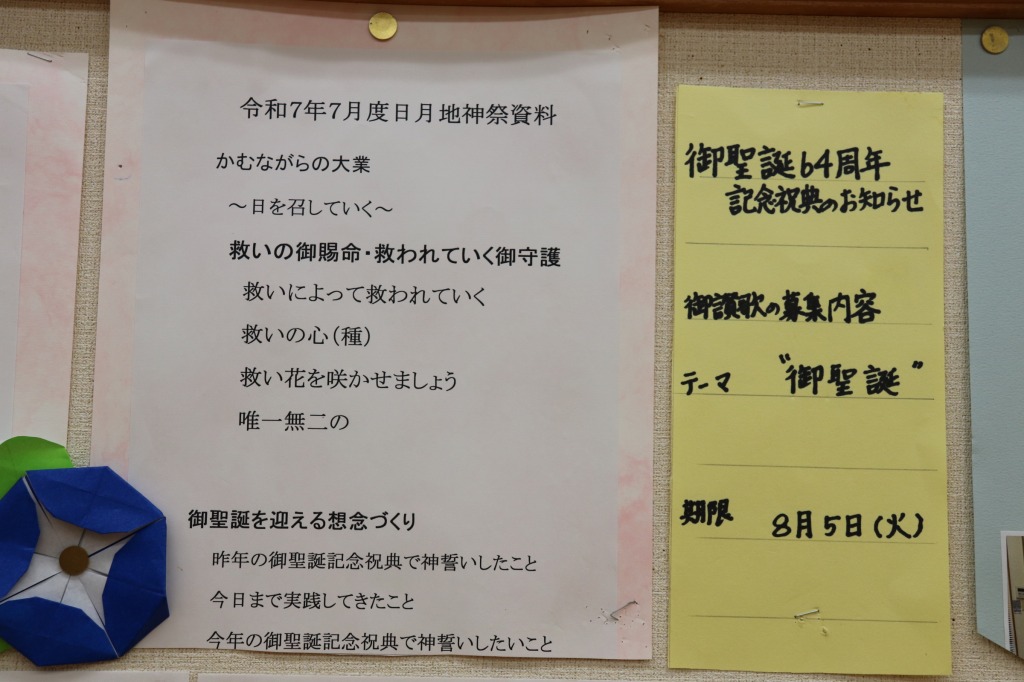 令和7年7月度日月地神祭資料
かむながらの大業
～日を召していく～
救いの御賜命・救われていく御守護
救いによって救われていく
救いの心(種)
救い花を咲かせましょう
唯一無二の
御聖誕を迎える想念づくり
昨年の御聖誕記念祝典で神誓いしたこと
今日まで実践してきたこと
今年の御聖誕記念祝典で神誓いしたいこと
御聖誕64周年
記念祝典のお知らせ
御讃歌の募集内容
テーマ "御聖誕"
期限 8月5日(火)